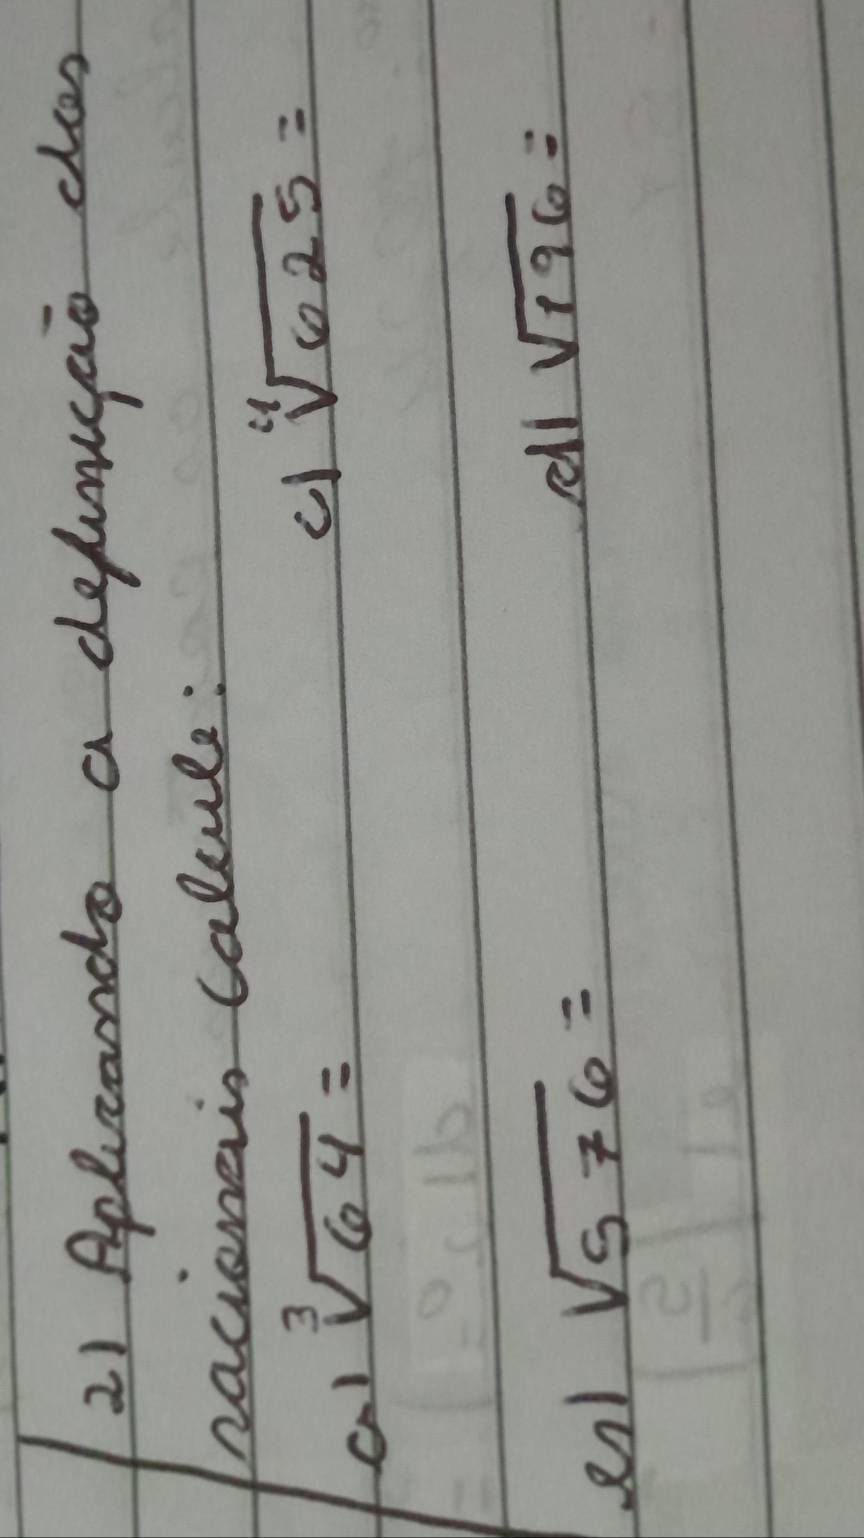 2) Aplicando a definição dos
racionais calcule:
a) ³√64 = c) ⁴√625 =
b) √576 = d) √196 =